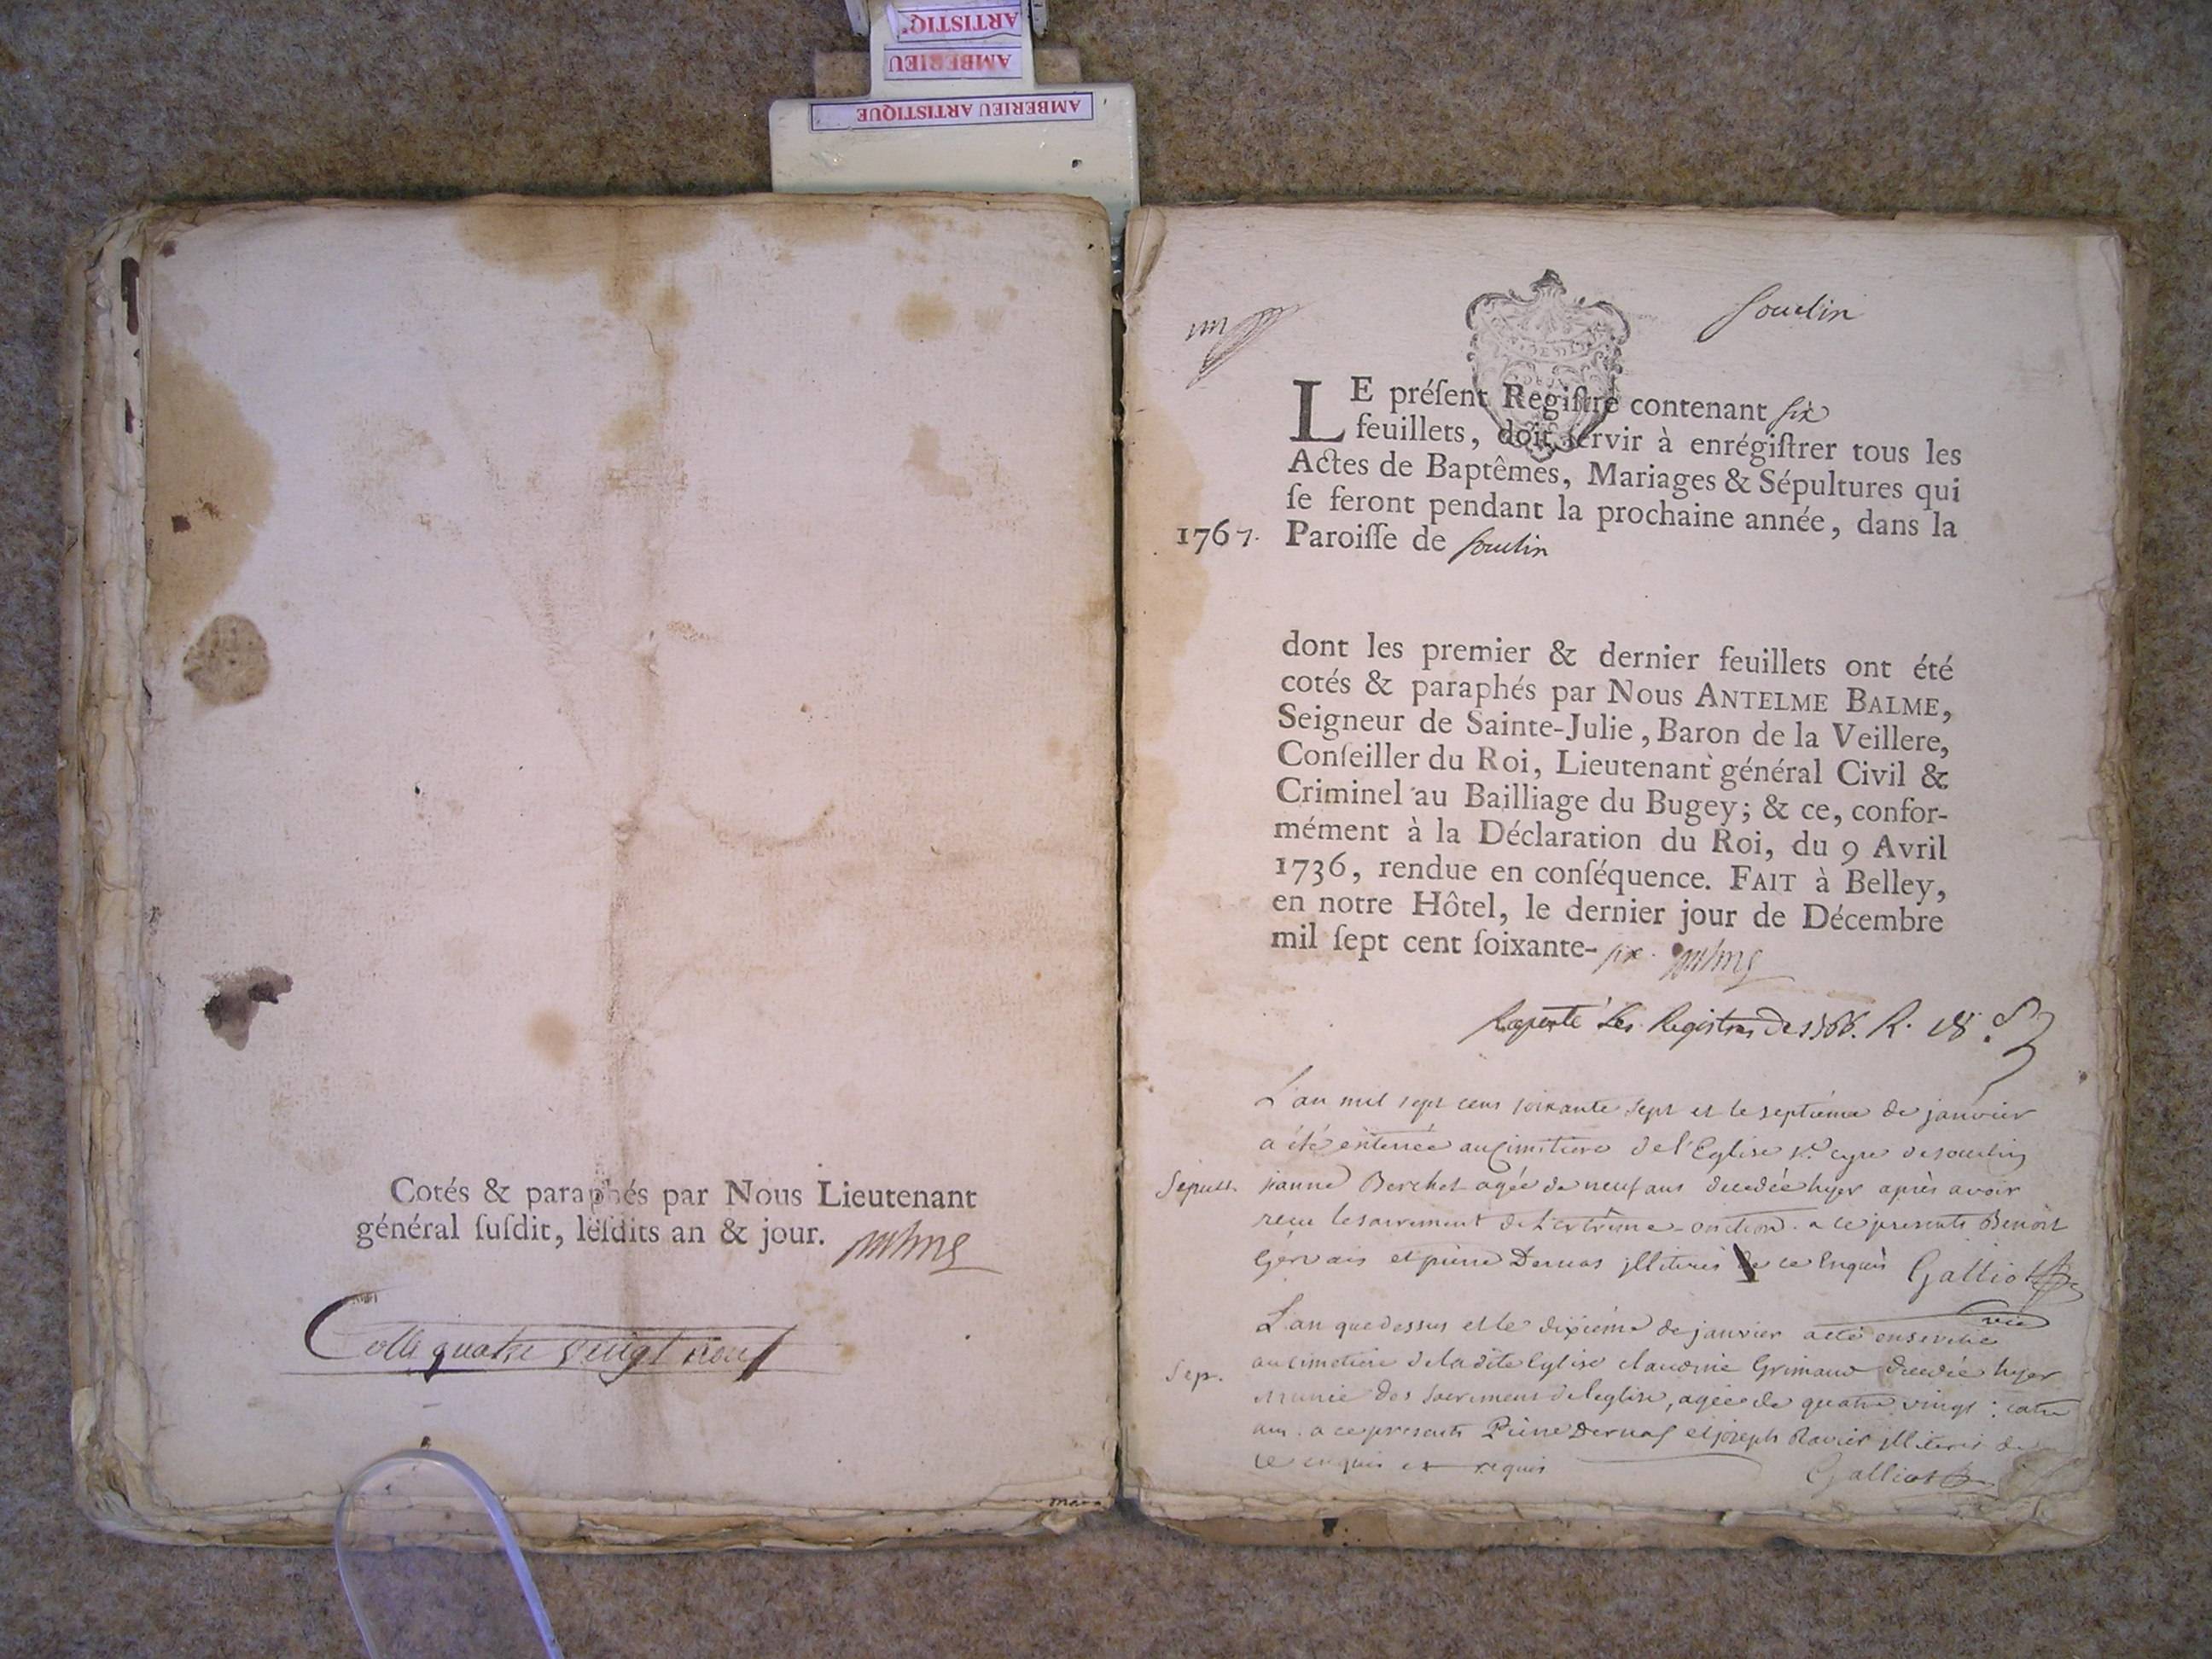 ARTISTIQ
AMBERIEU
AMBERIEU ARTISTIQUE
Cotés & paraphés par Nous Lieutenant
général ſuſdit, leſdits an & jour.
Cotte quatre vingt neuf
Souclin
LE préſent Regiſtre contenant six
feuillets, doit ſervir à enrégiſtrer tous les
Actes de Baptêmes, Mariages & Sépultures qui
ſe feront pendant la prochaine année, dans la
1767. Paroiſſe de Souclin
dont les premier & dernier feuillets ont été
cotés & paraphés par Nous ANTELME BALME,
Seigneur de Sainte-Julie, Baron de la Veillere,
Conſeiller du Roi, Lieutenant général Civil &
Criminel au Bailliage du Bugey; & ce, confor-
mément à la Déclaration du Roi, du 9 Avril
1736, rendue en conſéquence. FAIT à Belley,
en notre Hôtel, le dernier jour de Décembre
mil ſept cent ſoixante- six.
Raporté Les Registres de 1766. R. 18
L'an mil sept cens soixante sept et le septiéme de janvier
a été enterrée au Cimitiere de l'Eglise St. cyre de souclin
Sepult. jeanne Berchet agée de neuf ans decedée hyer après avoir
recu le sacrement de l'extrême-onction. a ce presents Benoit
Gervais et pierre Dernas illiterés de ce Enquis Galliot
L'an que dessus et le dixiéme de janvier a été ensevelie
Sep. au cimetiere de la dite Eglise claudine Grimaud decedée hyer
munie des sacremens de l'eglise, agée de quatre vingt
ans. a ce presents Pierre Dernas et joseph Ravier illiterés de
ce enquis et requis Galliot